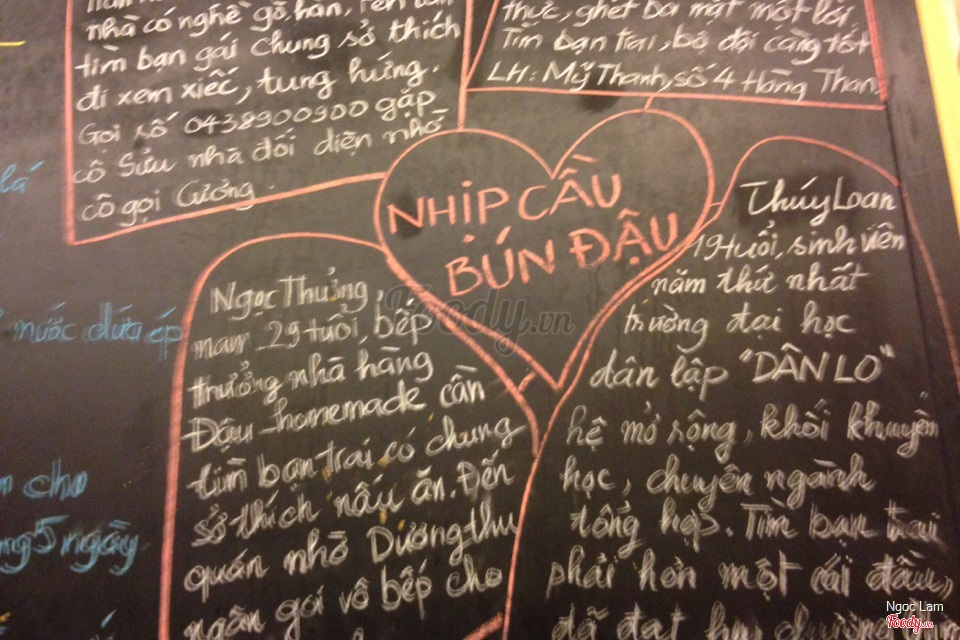 nhà có nghề gỗ, hàn, rèn
tìm bạn gái chung sở thích
đi xem xiếc, tung hứng.
Gọi số 0438900900 gặp
cô Sửu nhà đối diện nhờ
cô gọi Cương.
thực, ghét ba mặt một lời.
Tìm bạn trai, bộ đội càng tốt
LH: Mỹ Thanh, số 4 Hàng Than.
NHỊP CẦU
BÚN ĐẬU
lá
nước dừa ép
cho
5 ngày
Ngọc Thưởng,
nam, 29 tuổi, bếp
trưởng nhà hàng
Đậu homemade cần
tìm bạn trai có chung
sở thích nấu ăn. Đến
quán nhờ Dương thu
ngân gọi vô bếp cho
Thúy Loan
19 tuổi, sinh viên
năm thứ nhất
trường đại học
dân lập "DÂN LO"
hệ mở rộng, khối khuyến
học, chuyên ngành
tổng hợp. Tìm bạn trai
phải hơn một cái đầu,
đã đạt
Foody.vn
Ngoc Lam
Foody.vn